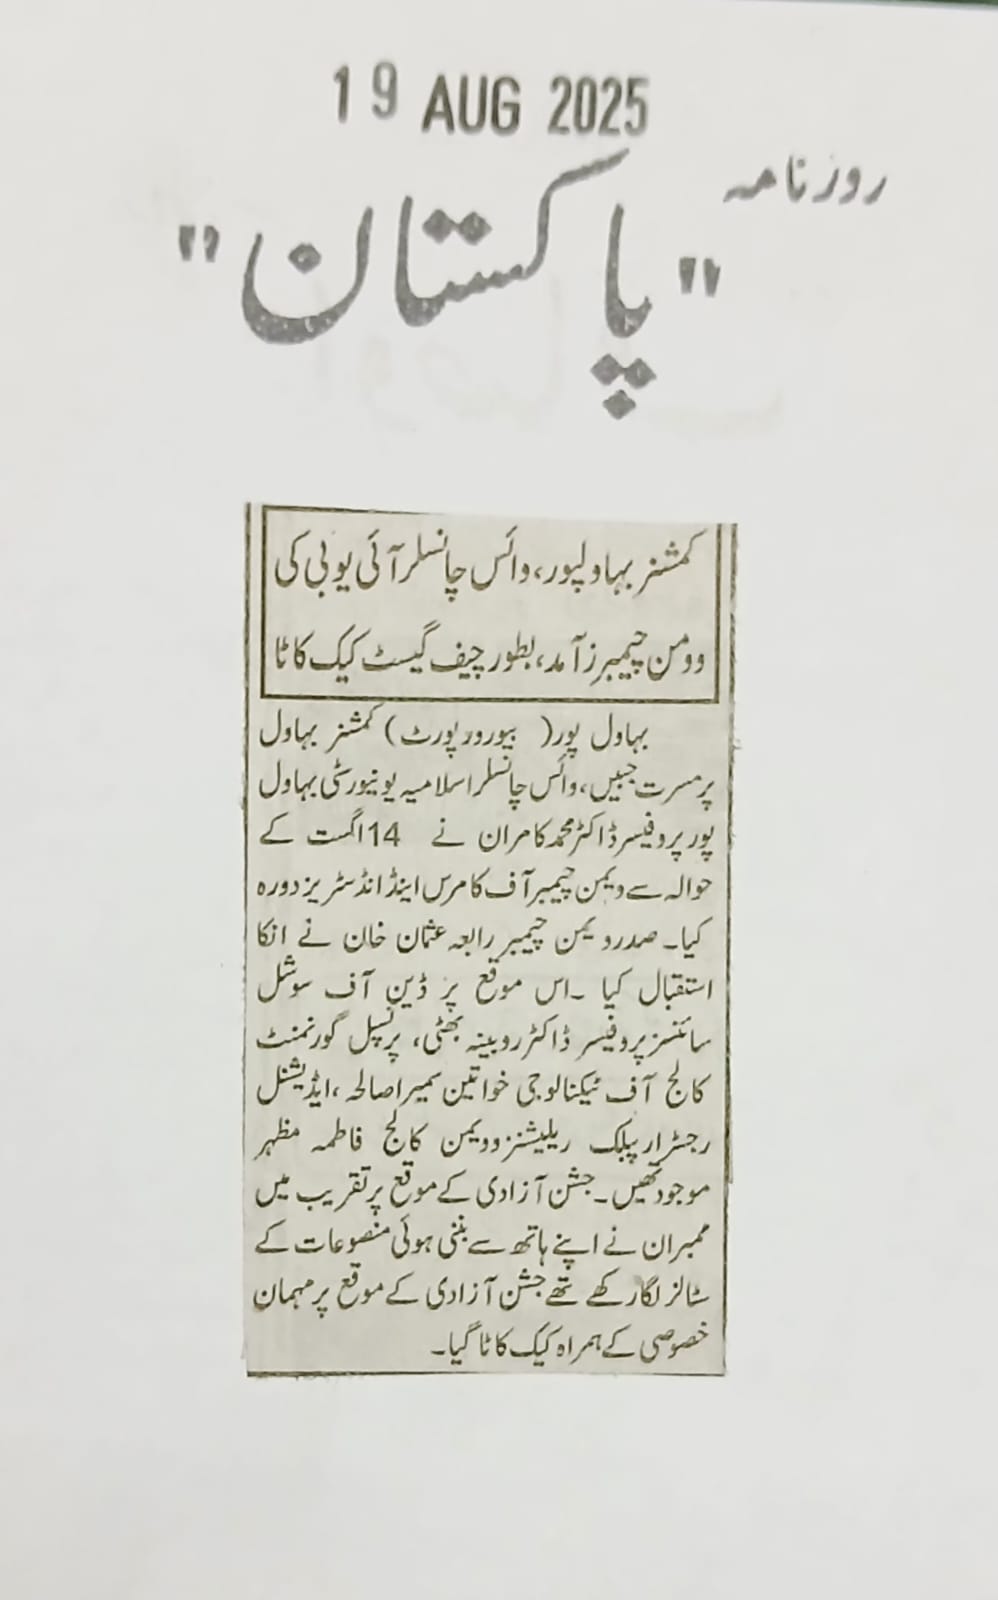 19 AUG 2025
روزنامہ
"پاکستان"
کمشنر بہاولپور، وائس چانسلر آئی یو بی کی
وومن چیمبرز آمد، بطور چیف گیسٹ کیک کاٹا
بہاول پور( بیورورپورٹ) کمشنر بہاول
پر مسرت جبیں، وائس چانسلر اسلامیہ یونیورسٹی بہاول
پور پروفیسر ڈاکٹر محمد کامران نے 14 اگست کے
حوالہ سے ویمن چیمبر آف کامرس اینڈ انڈسٹریز دورہ
کیا۔ صدر ویمن چیمبر رابعہ عثمان خان نے انکا
استقبال کیا ۔ اس موقع پر ڈین آف سوشل
سائنسز پروفیسر ڈاکٹر روبینہ بھٹی، پرنسپل گورنمنٹ
کالج آف ٹیکنالوجی خواتین سمیرا صالحہ ، ایڈیشنل
رجسٹرار پبلک ریلیشنز وویمن کالج فاطمہ مظہر
موجود تھیں۔ جشن آزادی کے موقع پر تقریب میں
ممبران نے اپنے ہاتھ سے بنی ہوئی منصوعات کے
سٹالز لگا رکھے تھے جشن آزادی کے موقع پر مہمان
خصوصی کے ہمراہ کیک کاٹا گیا۔